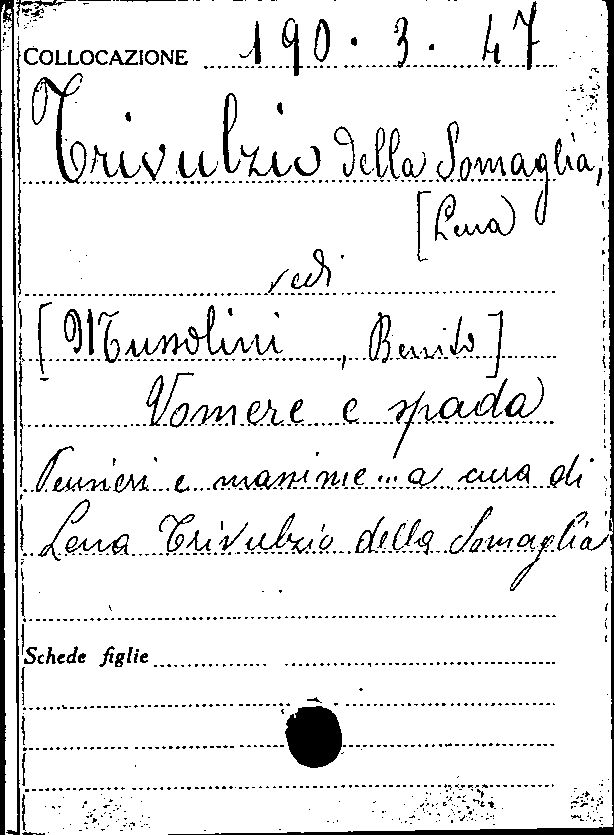 COLLOCAZIONE 190.3.47
Trivulzio della Somaglia,
[Lena
vedi
[Mussolini, Benito]
Vomere e spada
Pensieri e massime... a cura di
Lena Trivulzio della Somaglia
Schede figlie